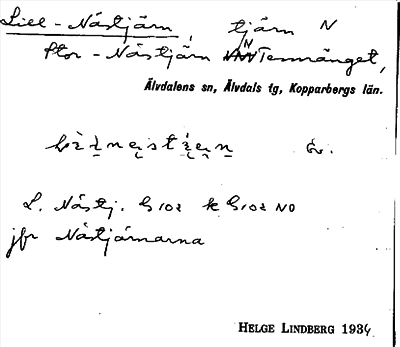 Lill-Nästjärn, tjärn N
Stor-Nästjärn Tennänget,
Älvdalens sn, Älvdals tg, Kopparbergs län.
L. Nästj. G 102 k G 102 NO
jfr Nästjärnarna
HELGE LINDBERG 1934